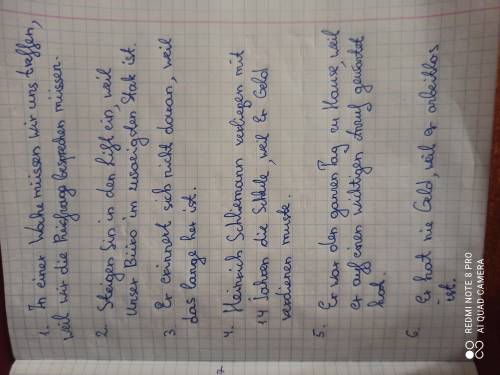 1. In einer Woche müssen wir uns treffen,
weil wir die Prüfung besprechen müssen.
2. Steigen Sin in den Lift ein, weil
unser Büro im zwanzigsten Stok ist.
3. Er erinnert sich nicht daran, weil
das lange her ist.
4. Heinrich Schliemann verliesen mit
14 Jahren die Schule, weil er Geld
verdienen muste.
5. Er war den ganzen Tag zu Hause, weil
er auf einen wichtigen Anruf gewartet
hat.
6. Er hat nie Geld, weil er arbeitlos
ist.
REDMI NOTE 8 PRO
AI QUAD CAMERA